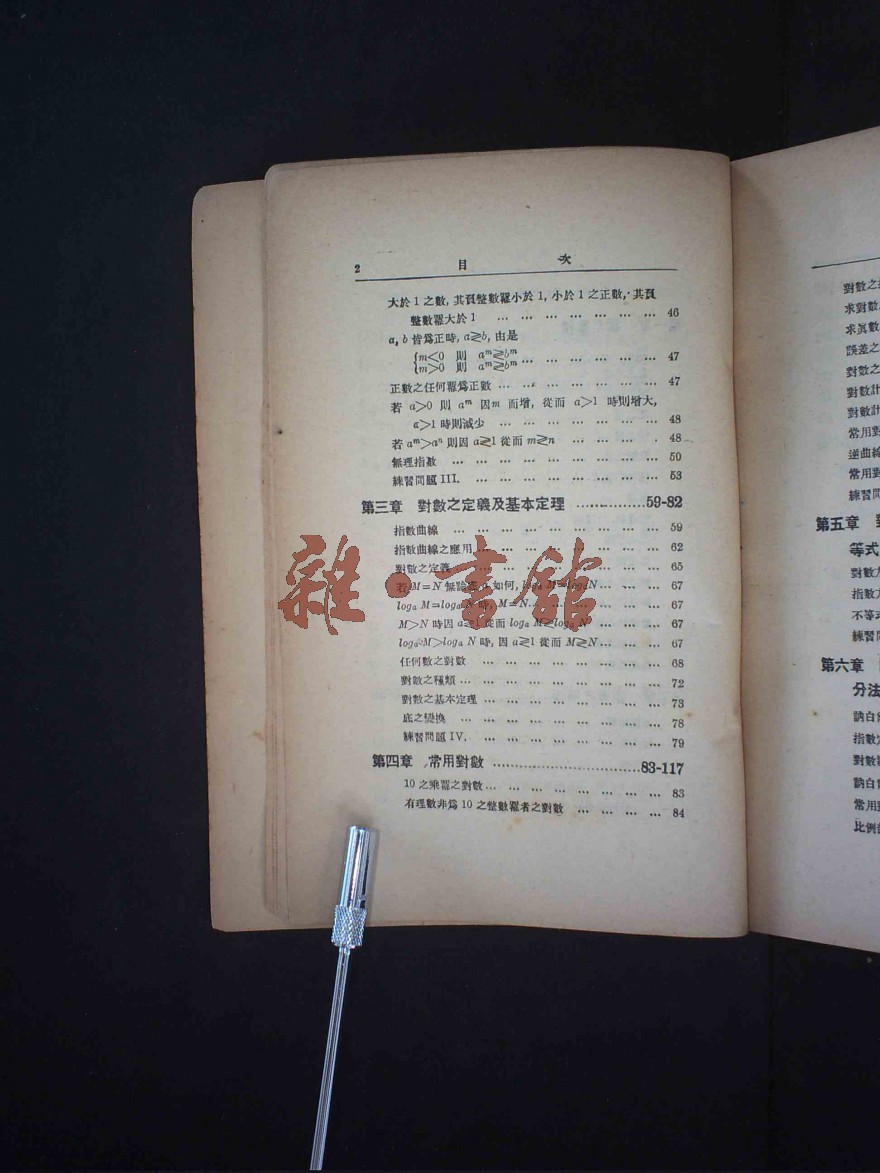 2 目 次
大於 1 之數, 其負整數羃小於 1, 小於 1 之正數, 其負
整數羃大於 1 … … … … … … … 46
a, b 皆爲正時, a≷b, 由是
m<0 則 aᵐ≶bᵐ
m>0 則 aᵐ≷bᵐ … … … … … … 47
正數之任何羃爲正數 … … … … … … … 47
若 a>0 則 aᵐ 因 m 而增, 從而 a>1 時則增大,
a>1 時則減少 … … … … … … … 48
若 aᵐ>aⁿ 則因 a≷1 從而 m≷n … … … . 48
無理指數 … … … … … … … … … 50
練習問題 III. … … … … … … … … 53
第三章 對數之定義及基本定理 ……………59-82
指數曲線 … … … … … … … … … 59
指數曲線之應用 … … … … … … … … 62
對數之定義 … … … … … … … … 65
若 M=N 無論 a 如何, logₐ M=logₐN … … … 67
logₐ M=logₐ N 時, M=N … … … … … … 67
M>N 時因 a≷1 從而 logₐ M≷logₐ N … … … 67
logₐ M>logₐ N 時, 因 a≷1 從而 M≷N … … … 67
任何數之對數 … … … … … … … … 68
對數之種類 … … … … … … … … … 72
對數之基本定理 … … … … … … … … 73
底之變換 … … … … … … … … … 78
練習問題 IV. … … … … … … … … 79
第四章 常用對數 ……………………………83-117
10 之乘羃之對數 … … … … … … … … 83
有理數非爲 10 之整數羃者之對數 … … … … 84
對數之
求對數
求眞數
誤差之
對數之
對數計
對數計
常用對
逆曲線
常用對
練習問
第五章
等式
對數方
指數方
不等式
練習問
第六章
分法
訥白爾
指數定
對數羃
訥白爾
常用對
比例部
雜·書館